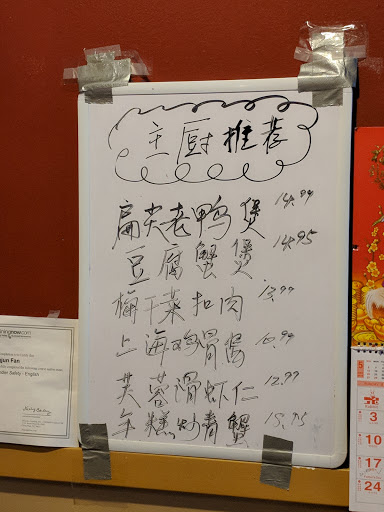 主厨推荐
扁尖老鸭煲 14.99
豆腐蟹煲 14.95
梅干菜扣肉 13.99
上海鸡骨酱 10.99
芙蓉滑虾仁 12.99
年糕炒青蟹 15.95
gun Fan
5
3
10
17
24